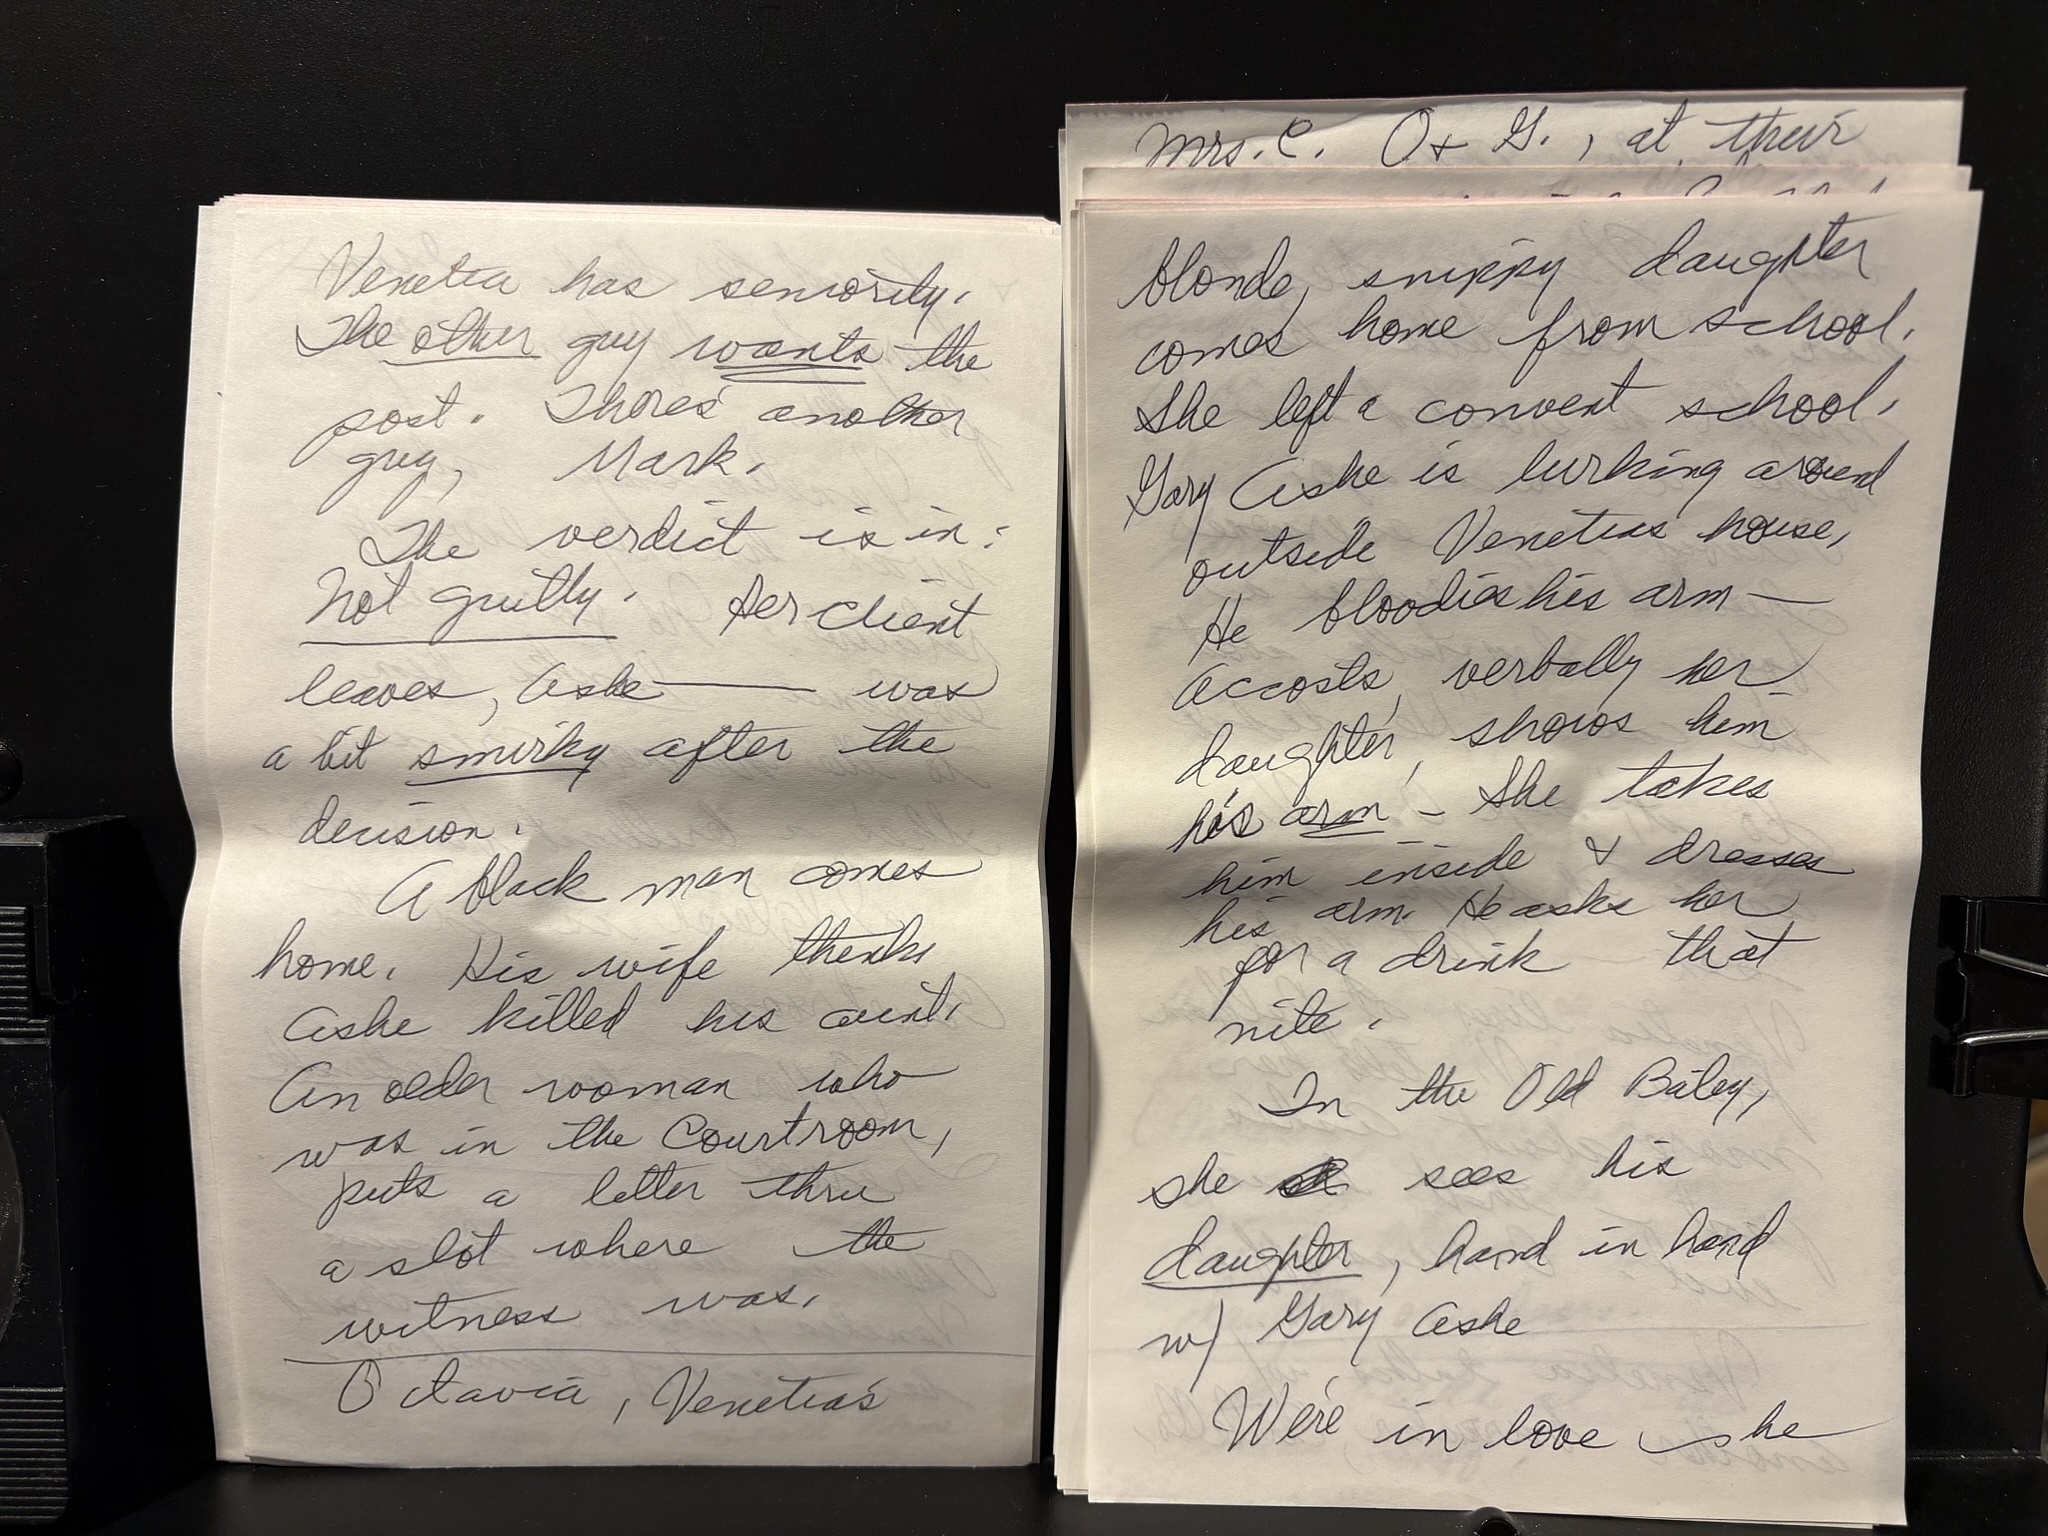 Venetia has seniority.
The other guy wants the
post. Theres another
guy, Mark.
The verdict is in:
Not guilty. Her client
leaves, Ashe — was
a bit smirky after the
decision.
A black man comes
home. His wife thinks
Ashe killed his aunt.
An older woman who
was in the Courtroom,
puts a letter thru
a slot where the
witness was.
Octavia, Venetia's
Mrs. C. O + G., at their
blonde, snippy daughter
comes home from school.
She left a convent school.
Gary Ashe is lurking around
outside Venetias house,
He bloodies his arm —
accosts, verbally her
daughter, shows him
his arm - She takes
him inside & dresses
his arm. He asks her
for a drink that
nite.
In the Old Bailey,
she sees his
daughter, hand in hand
w/ Gary Ashe
We're in love she